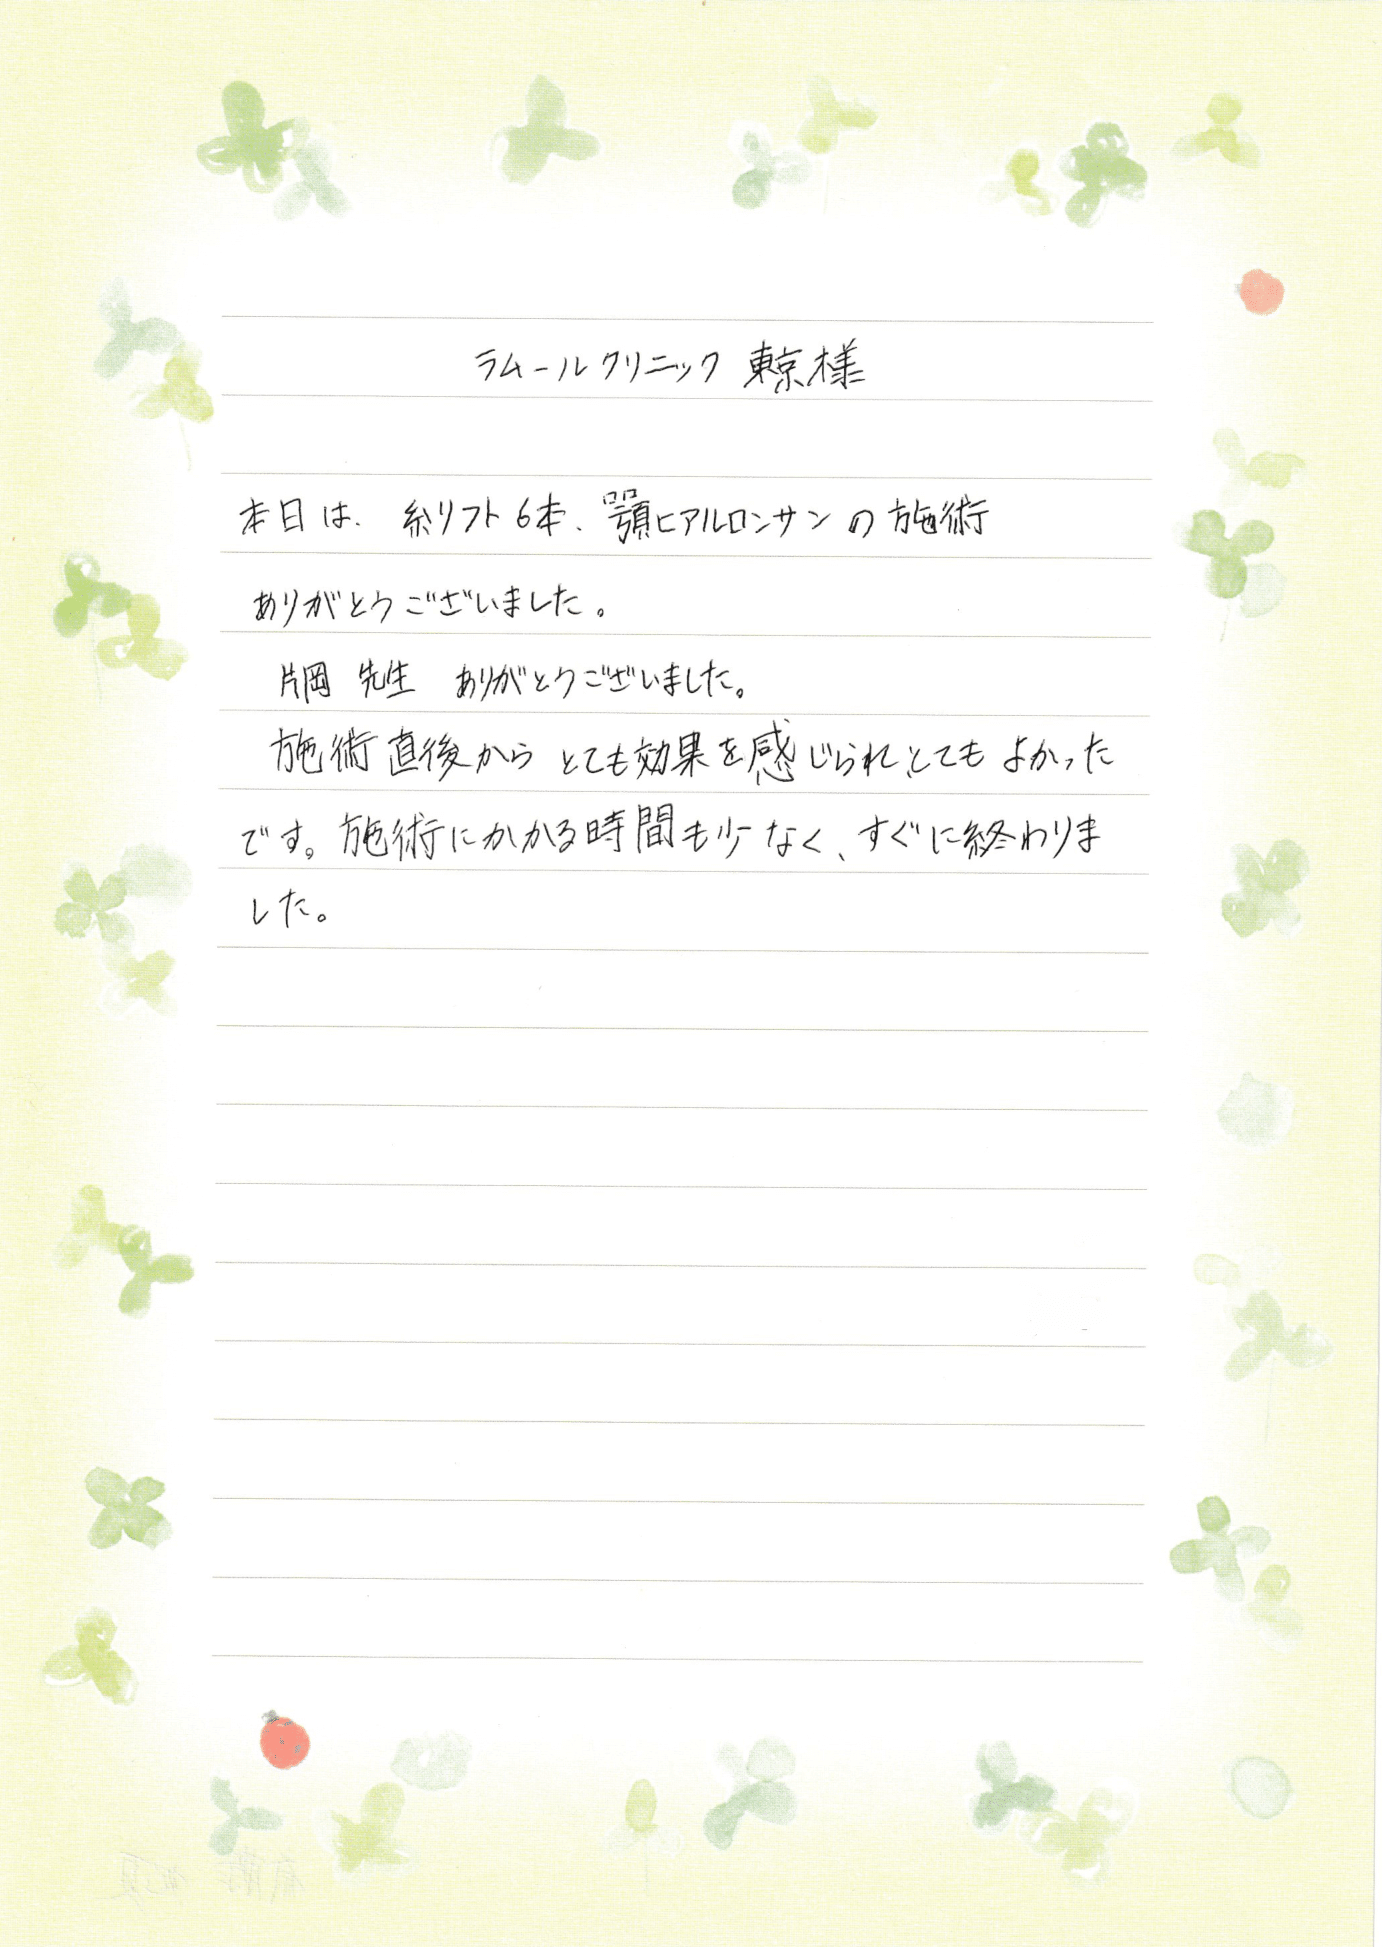 ラムールクリニック 東京様
本日は、糸リフト6本、顎ヒアルロンサンの施術
ありがとうございました。
片岡 先生 ありがとうございました。
施術直後からとても効果を感じられ、とてもよかった
です。施術にかかる時間も少なく、すぐに終わりま
した。